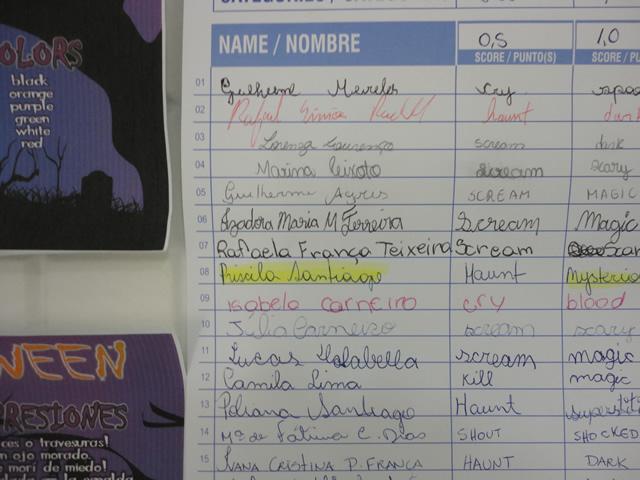 OLORS
black
orange
purple
green
white
red
WEEN
PRESIONES
ces o travesuras!
n ojo morado.
e morí de miedo!
NAME / NOMBRE 0,5 1,0
SCORE / PUNTO(S) SCORE / PU
01 Guilherme Meireles cry
02 Rafael haunt dark
03 Lorenza Lourenço scream dark
04 Marina Peixoto scream scary
05 Guilherme Ayres SCREAM MAGIC
06 Izadora Maria M Ferreira Scream Magic
07 Rafaela França Teixeira Scream scar
08 Priscila Santiago Haunt Mysterio
09 Isabela carneiro cry blood
10 Julia Carneiro scream scary
11 Lucas Halabella scream magic
12 Camila Lima Kill magic
13 Poliana Santiago Haunt superstiti
14 Mª de Fátima C. Dias SHOUT SHOCKED
15 IVANA CRISTINA P. FRANCA HAUNT DARK